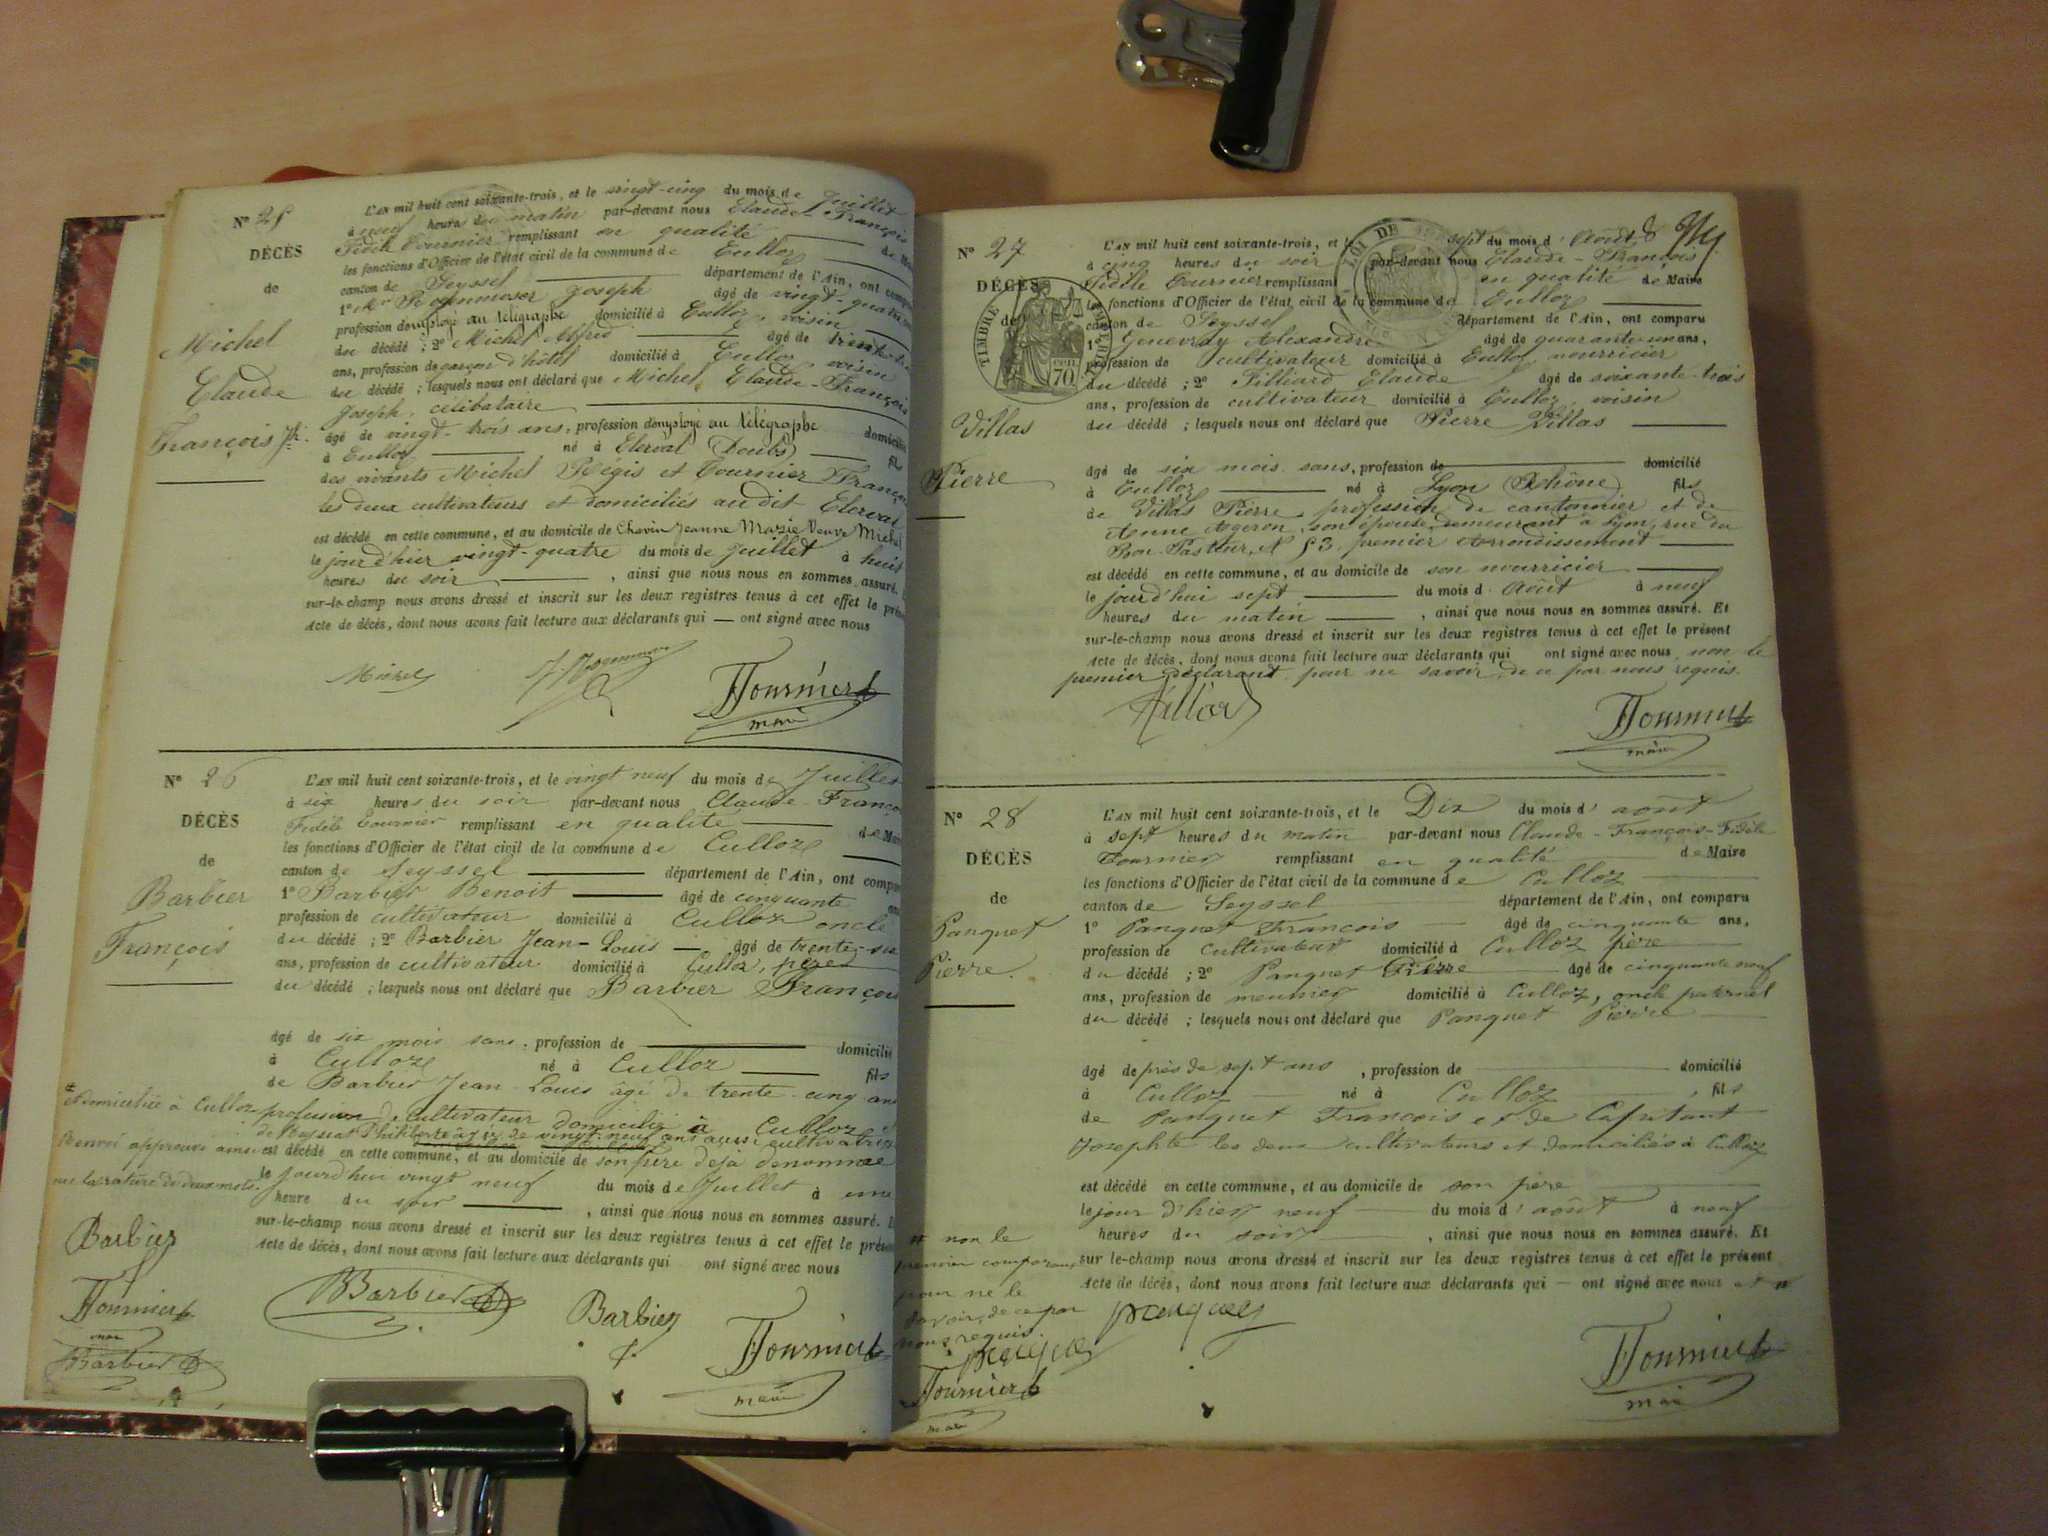 N° 25
DÉCÈS
de
Michel
Claude
François Jh.
L'AN mil huit cent soixante-trois, et le vingt-cinq du mois de Juillet
à neuf heures du matin par-devant nous Claude-François
Fidèle Tournier remplissant en qualité de
les fonctions d'Officier de l'état civil de la commune de Culloz
canton de Seyssel département de l'Ain, ont
1° Joseph âgé de vingt-quatre
profession d'employé au télégraphe domicilié à Culloz, voisin
du décédé ; 2° Michel Alfred âgé de
ans, profession de garçon d'hôtel domicilié à Culloz voisin
du décédé ; lesquels nous ont déclaré que Michel Claude-François
Joseph, célibataire
âgé de vingt-trois ans, profession d'employé au télégraphe domicilié
à Culloz né à Clerval (Doubs) fils
des vivants Michel Régis et Tournier
les deux cultivateurs et domiciliés au dit Clerval
est décédé en cette commune, et au domicile de Chavin Jeanne Marie Veuve Michel
le jourd'hier vingt-quatre du mois de Juillet à huit
heures du soir , ainsi que nous nous en sommes assuré.
sur-le-champ nous avons dressé et inscrit sur les deux registres tenus à cet effet le
acte de décès, dont nous avons fait lecture aux déclarants qui — ont signé avec nous
Michel
FTournier
maire
N° 26
DÉCÈS
de
Barbier
François
L'AN mil huit cent soixante-trois, et le vingt neuf du mois de Juillet
à six heures du soir par-devant nous Claude-François
Fidèle Tournier remplissant en qualité de
les fonctions d'Officier de l'état civil de la commune de Culloz
canton de Seyssel département de l'Ain, ont
1° Barbier Benoit âgé de cinquante
profession de cultivateur domicilié à Culloz oncle
du décédé ; 2° Barbier Jean-Louis — âgé de trente-six
ans, profession de cultivateur domicilié à Culloz, père
du décédé ; lesquels nous ont déclaré que Barbier François
âgé de six mois sans, profession de domicilié
à Culloz né à Culloz fils
de Barbier Jean Louis âgé de trente-cinq ans
profession de cultivateur domicilié à Culloz
de âgée de vingt-neuf ans aussi cultivatrice
domiciliée à Culloz
Renvoi approuvé ainsi
que la rature de deux mots.
est décédé en cette commune, et au domicile de son père déjà dénommé
le jourd'hui vingt neuf du mois de Juillet à une
heure du soir , ainsi que nous nous en sommes assuré.
sur-le-champ nous avons dressé et inscrit sur les deux registres tenus à cet effet le
acte de décès, dont nous avons fait lecture aux déclarants qui ont signé avec nous
Barbier
FTournier
maire
Barbier
BBarbier
Barbier
FTournier
maire
N° 27
DÉCÈS
de
TIMBRE IMPÉRIAL
CEN. 70
LOI DE
Villas
Pierre
L'AN mil huit cent soixante-trois, et le sept du mois d'Août
à cinq heures du soir par-devant nous Claude-François
Fidèle Tournier remplissant en qualité de Maire
les fonctions d'Officier de l'état civil de la commune de Culloz
canton de Seyssel département de l'Ain, ont comparu
1° Genevray Alexandre âgé de quarante-un ans,
profession de cultivateur domicilié à Culloz nourricier
du décédé ; 2° Filliard Claude âgé de soixante-trois
ans, profession de cultivateur domicilié à Culloz, voisin
du décédé ; lesquels nous ont déclaré que Pierre Villas
âgé de six mois sans, profession de domicilié
à Culloz né à Lyon (Rhône) fils
de Villas Pierre, profession de cantonnier et de
Anne Ageron, son épouse, demeurant à Lyon, rue du
Bon-Pasteur, N° 53, premier Arrondissement
est décédé en cette commune, et au domicile de son nourricier
le jourd'hui sept du mois d'Août à neuf
heures du matin , ainsi que nous nous en sommes assuré. Et
sur-le-champ nous avons dressé et inscrit sur les deux registres tenus à cet effet le présent
acte de décès, dont nous avons fait lecture aux déclarants qui ont signé avec nous non le
premier déclarant pour ne savoir, de ce par nous requis.
Filliard
FTournier
maire
N° 28
DÉCÈS
de
Panquet
Pierre.
L'AN mil huit cent soixante-trois, et le Dix du mois d'août
à sept heures du matin par-devant nous Claude-François-Fidèle
Tournier remplissant en qualité de Maire
les fonctions d'Officier de l'état civil de la commune de Culloz
canton de Seyssel département de l'Ain, ont comparu
1° Panquet François âgé de cinquante ans,
profession de cultivateur domicilié à Culloz père
du décédé ; 2° Panquet Pierre âgé de cinquante neuf
ans, profession de meunier domicilié à Culloz, oncle paternel
du décédé ; lesquels nous ont déclaré que Panquet Pierre
âgé de près de sept ans , profession de domicilié
à Culloz né à Culloz , fils
de Panquet François et de
Josephte les deux cultivateurs et domiciliés à Culloz
est décédé en cette commune, et au domicile de son père
le jour d'hier neuf du mois d'août à neuf
heures du soir , ainsi que nous nous en sommes assuré. Et
sur le-champ nous avons dressé et inscrit sur les deux registres tenus à cet effet le présent
acte de décès, dont nous avons fait lecture aux déclarants qui — ont signé avec nous
non le
premier comparant
pour ne le
savoir, de ce par
nous requis.
panquet
FTournier
maire
panquet
FTournier
maire